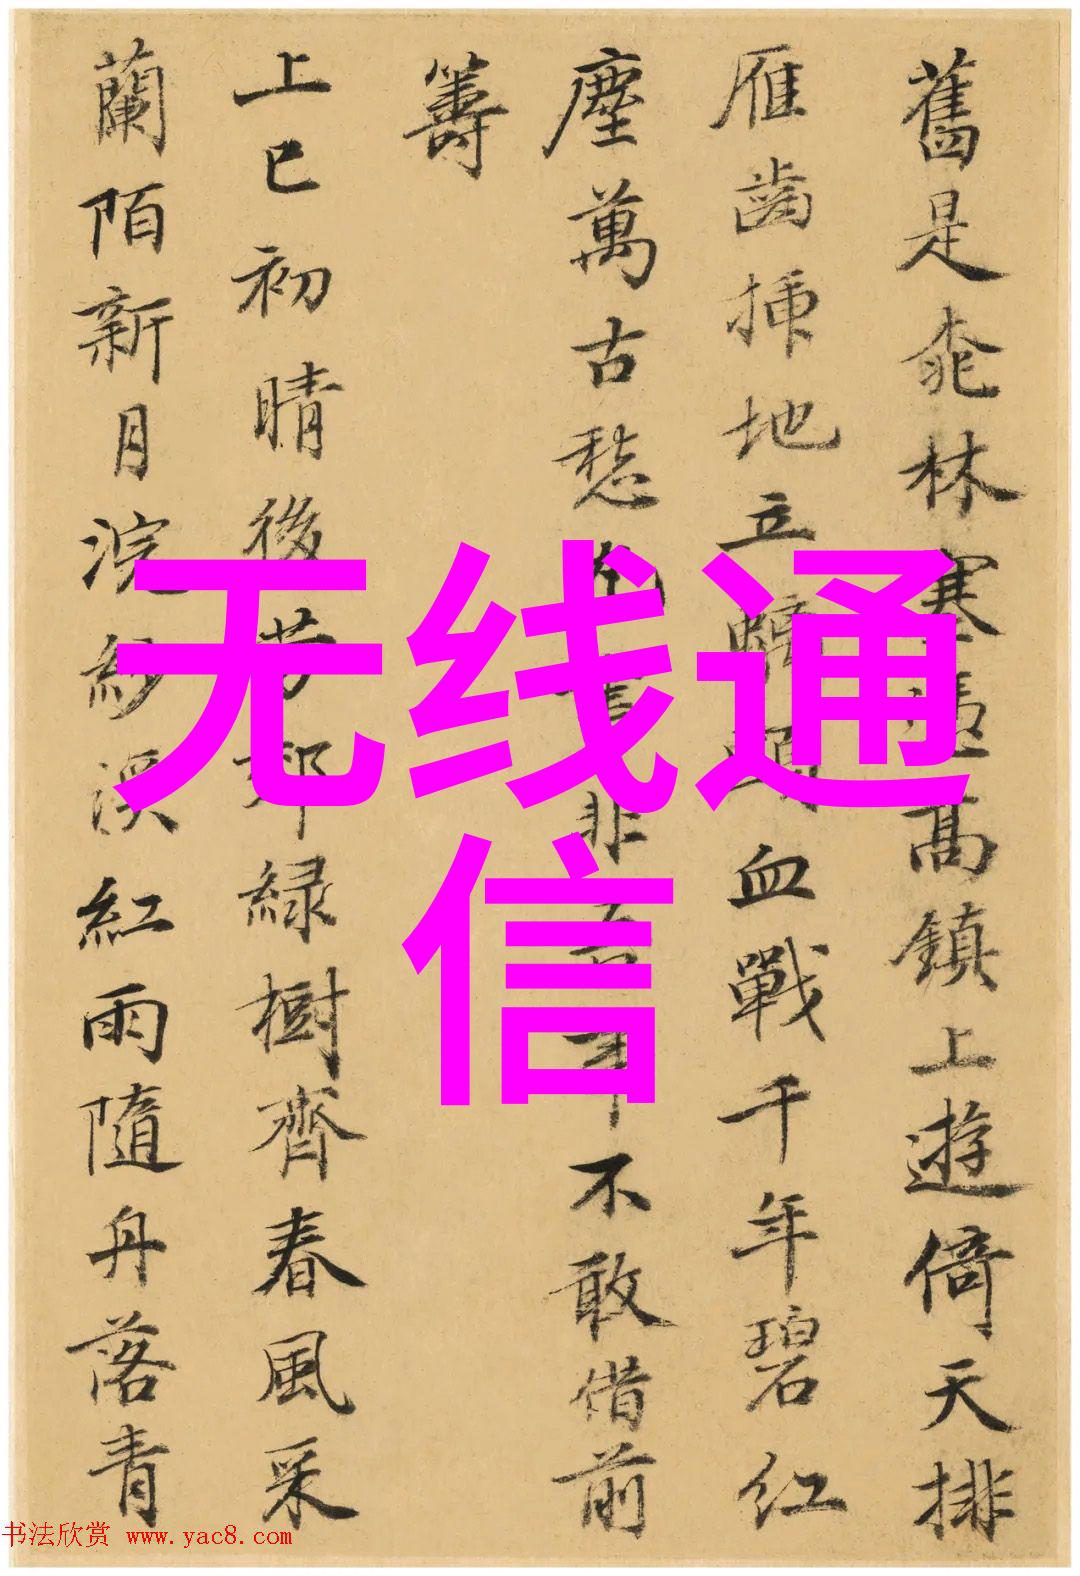 舊是桃林塞高鎮上遊倚天排
雁齒插地立血戰千年碧紅
塵萬古愁非不敢借前
籌
上巳初晴後芳郊綠樹齊春風采
蘭陌新月浣紗溪紅雨隨舟落青
无线通
信
书法欣赏 www.yac8.com